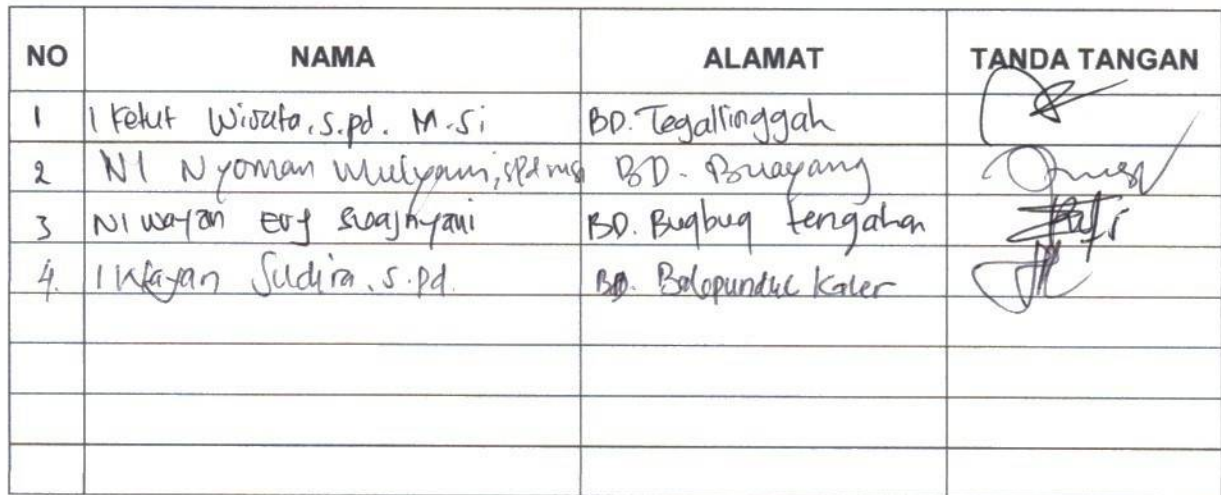 NO NAMA ALAMAT TANDA TANGAN
1 I Ketut Wirata, S.pd. M.Si BD. Tegallinggah
2 NI Nyoman Mulyani, SPd BD. Buayang
3 NI Wayan Swajnyani BD. Bugbug tengahan
4. I Wayan Sudira, S.pd. BD. Kaler